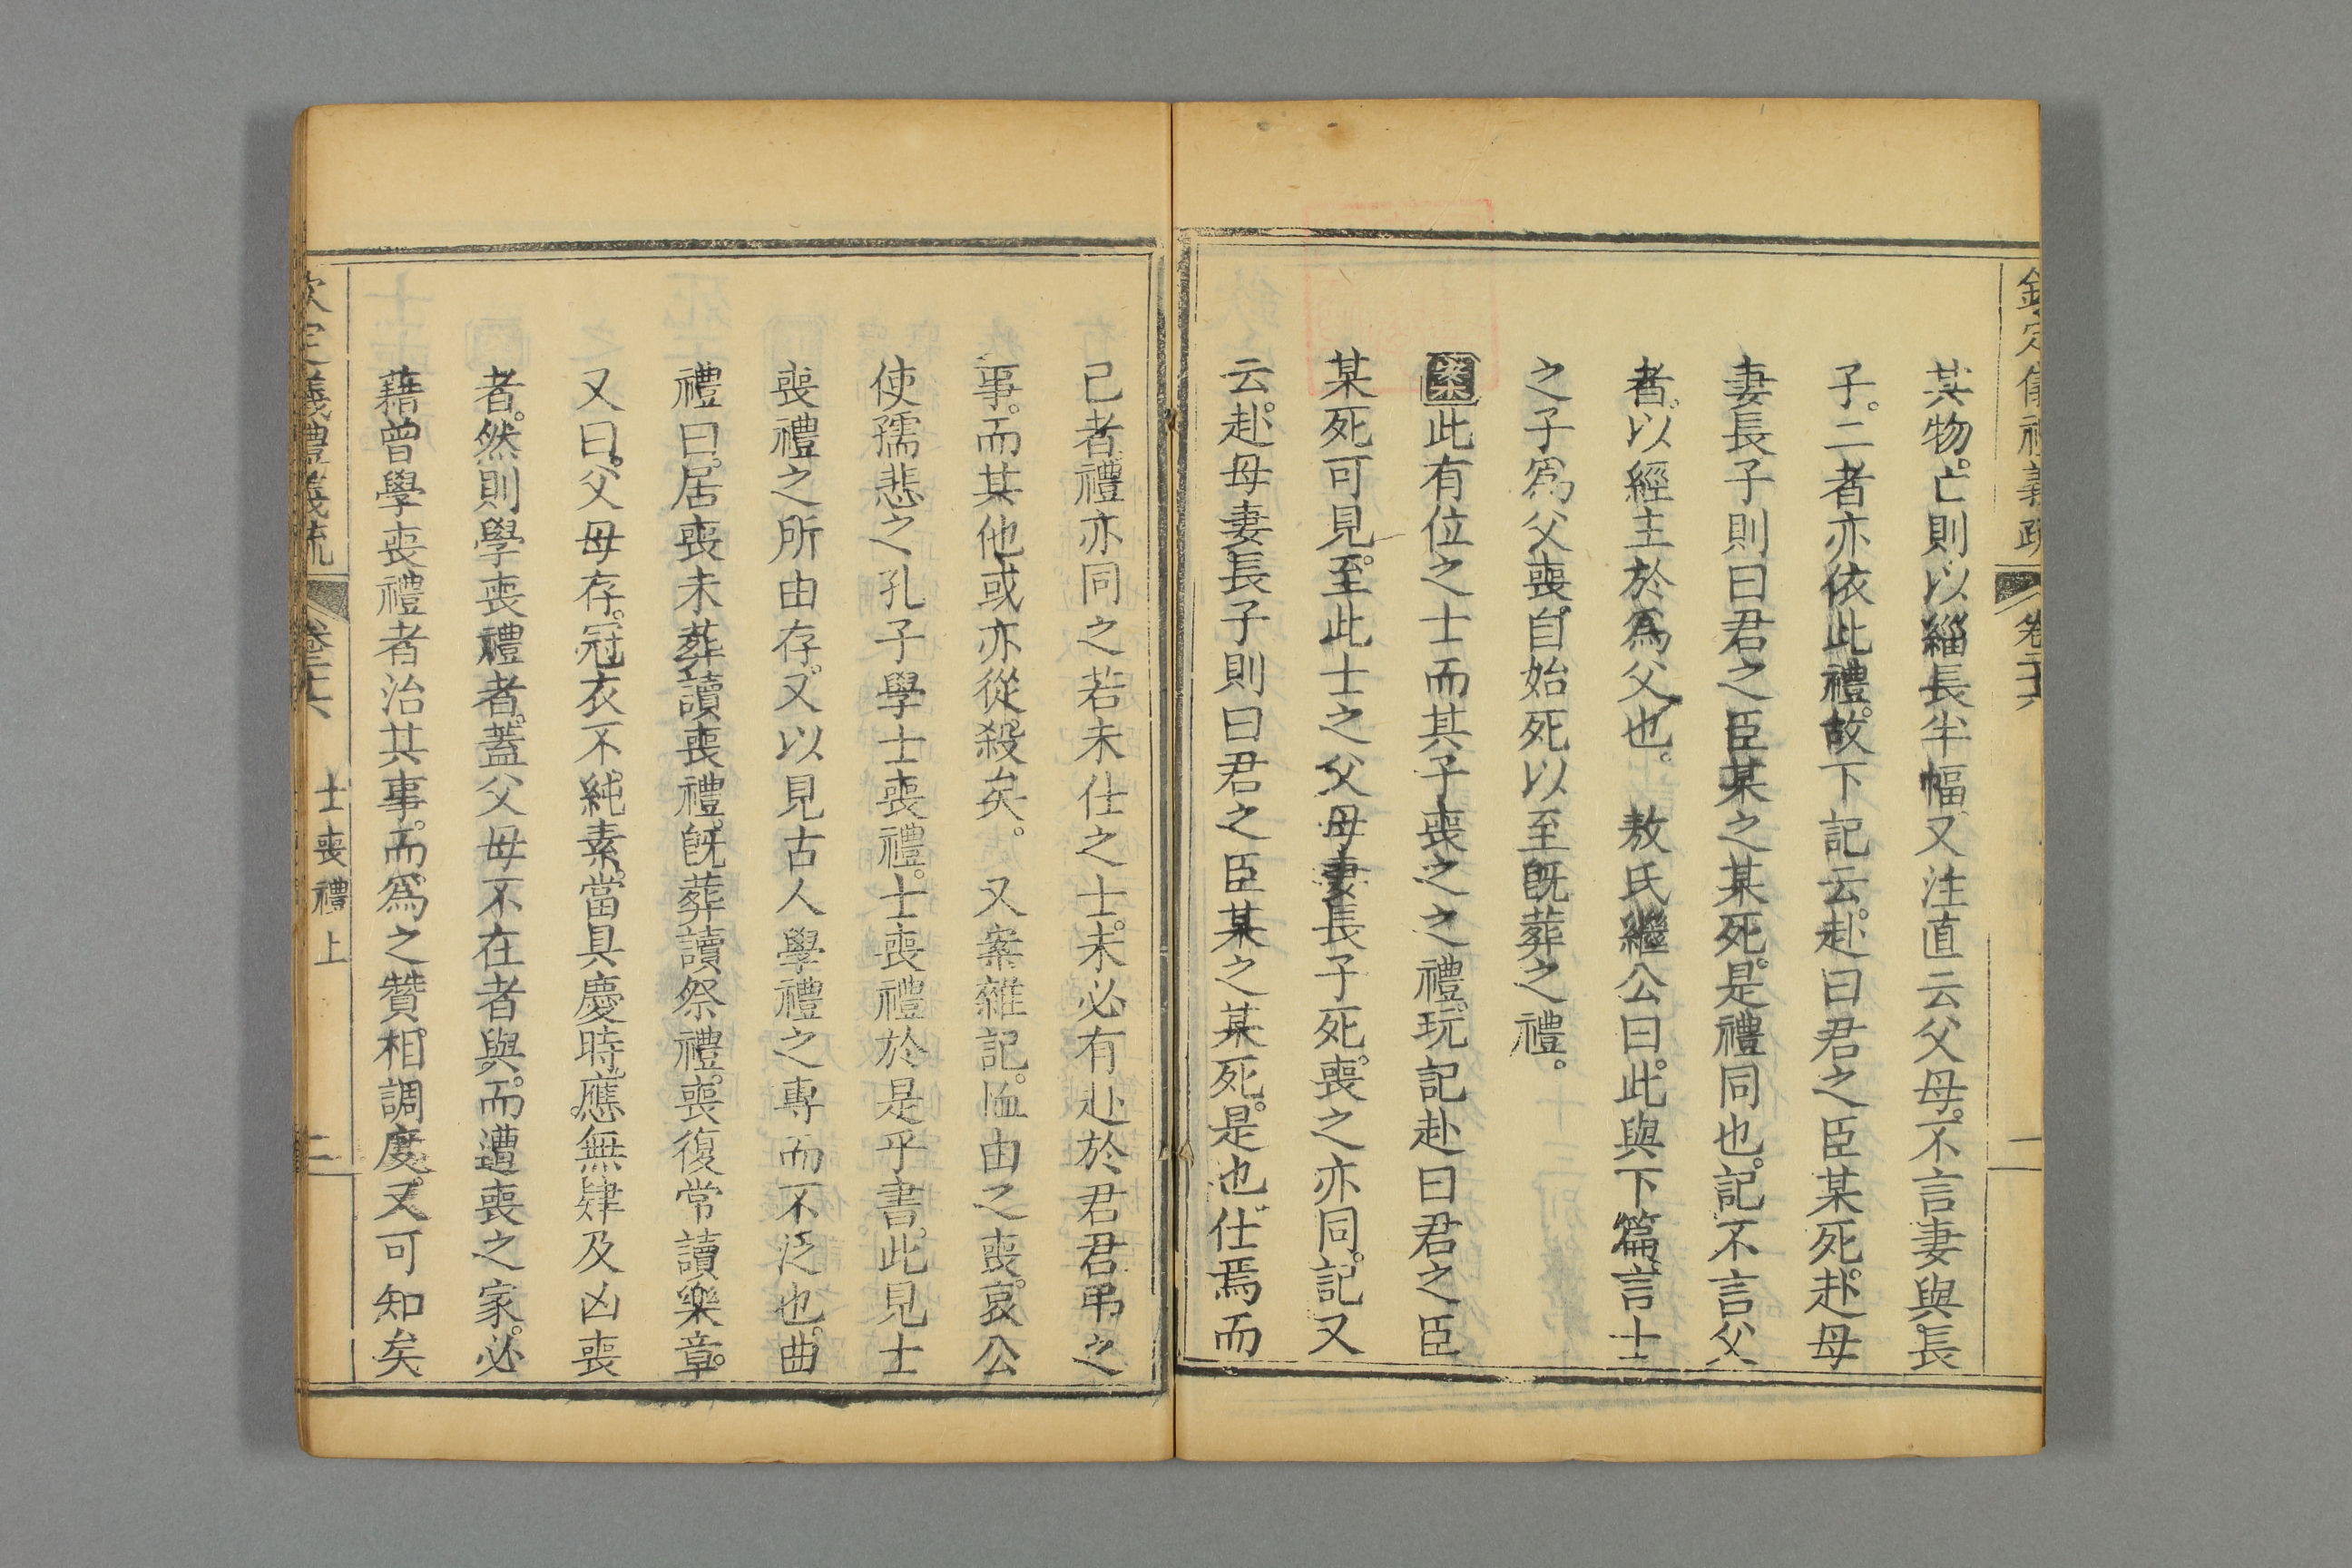 欽定儀禮義疏 卷二十六 一
其物。亡則以緇長半幅。又注直云父母。不言妻與長
子。二者亦依此禮。故下記云。赴曰君之臣某死。赴母
妻長子則曰君之臣某之某死。是禮同也。記不言父
者。以經主於爲父也。 敖氏繼公曰。此與下篇。言士
之子爲父喪。自始死以至旣葬之禮。
案此有位之士而其子喪之之禮。玩記赴曰君之臣
某死可見。至此士之父母妻長子死。喪之亦同。記又
云。赴母妻長子則曰君之臣某之某死。是也。仕焉而
已者。禮亦同之若未仕之士。未必有赴於君君弔之
事。而其他或亦從殺矣。 又案雜記。恤由之喪。哀公
使孺悲之孔子學士喪禮。士喪禮於是乎書。此見士
喪禮之所由存。又以見古人學禮之專而不泛也。曲
禮曰。居喪未葬讀喪禮。旣葬讀祭禮。喪復常讀樂章。
又曰。父母存。冠衣不純素。當具慶時。應無肄及凶喪
者。然則學喪禮者。蓋父母不在者與。而遭喪之家。必
藉曾學喪禮者治其事。而爲之贊相調度。又可知矣
欽定儀禮義疏 卷二十六 士喪禮上 二